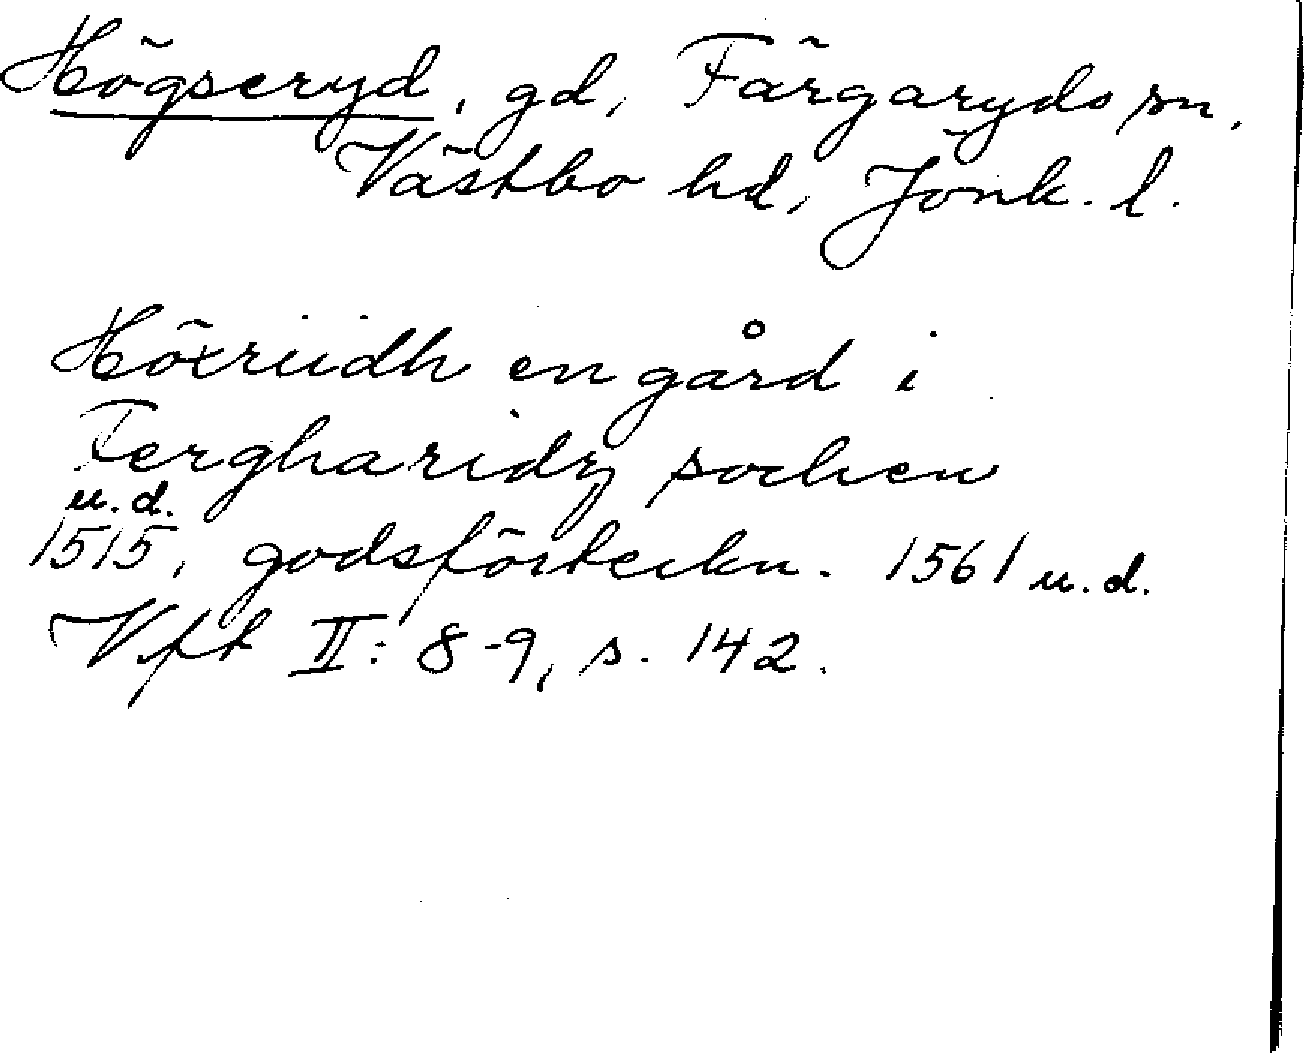 Högseryd, gd, Färgaryds sn,
Västbo hd, Jönk. l.
Höxriidh en gård i
Fergharidz sochen
u.d.
1515, godsförteckn. 1561 u.d.
Vft II: 8-9, s. 142.